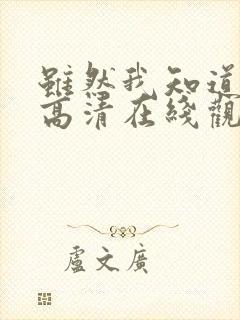 雖然我知道
高清在綫觀
盧文廣